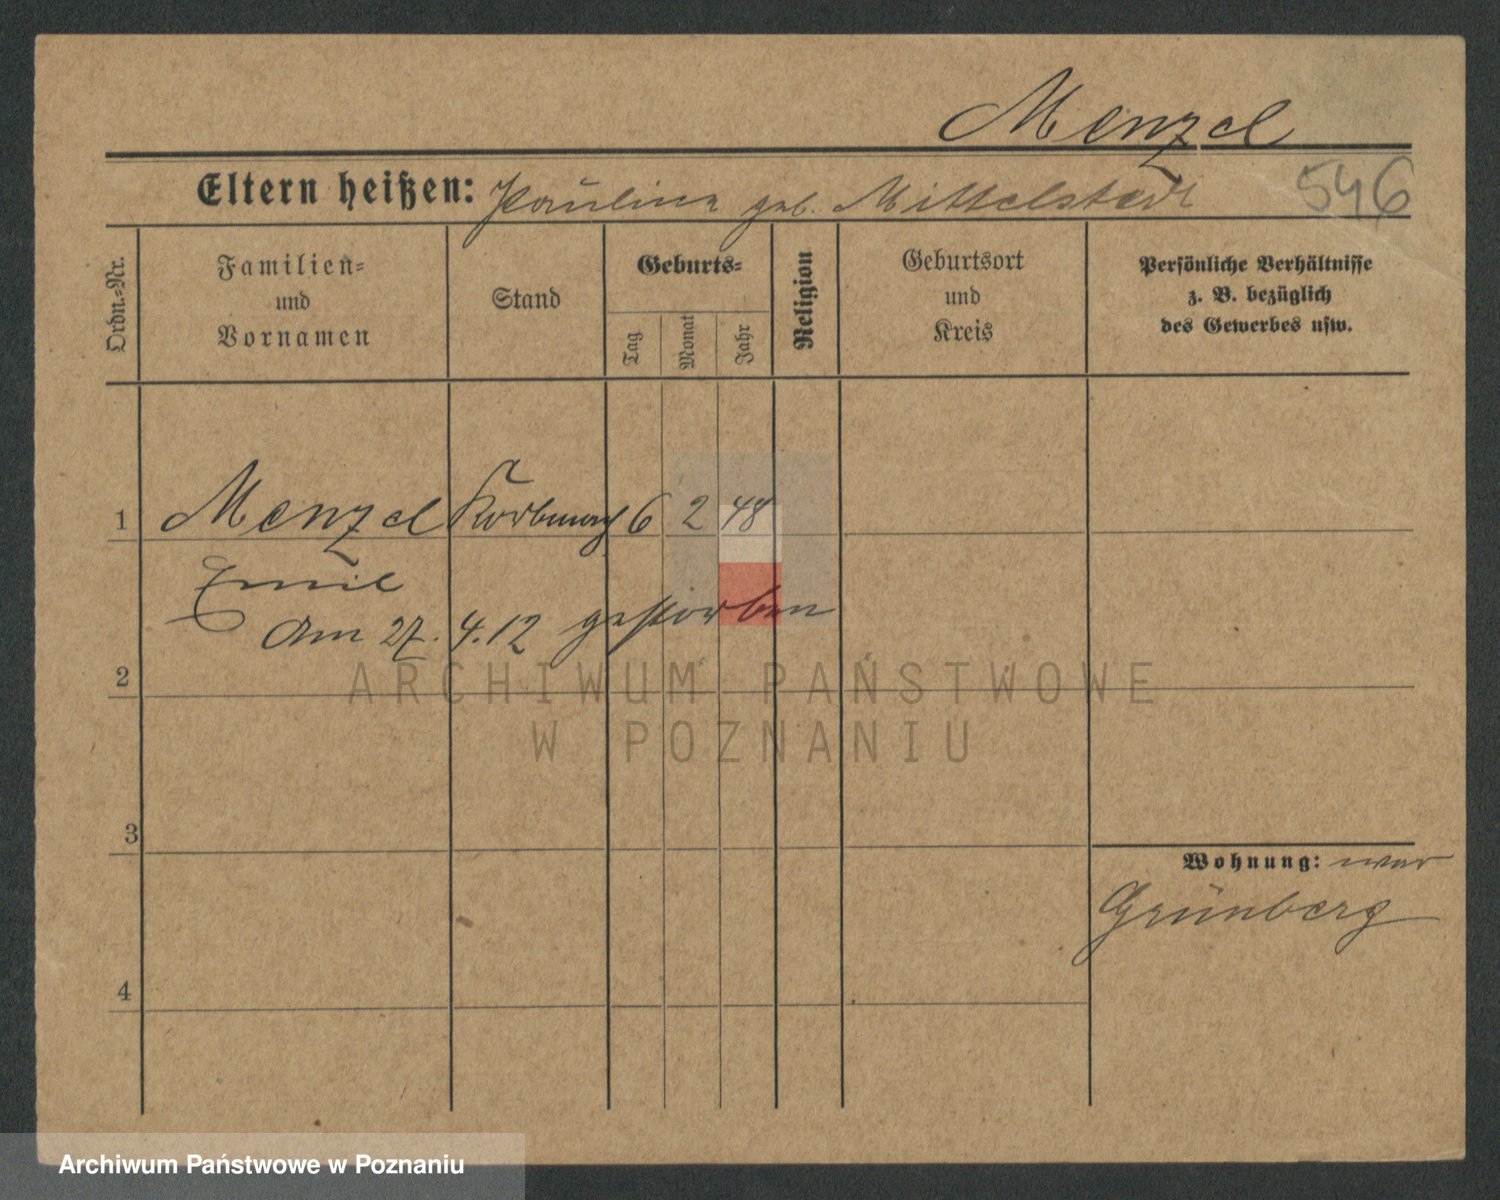 Menzel
Eltern heißen: Pauline geb. Mittelstedt
546
Ordn.-Nr.
Familien-
und
Vornamen
Stand
Geburts-
Tag
Monat
Jahr
Religion
Geburtsort
und
Kreis
Persönliche Verhältnisse
z. B. bezüglich
des Gewerbes usw.
1 Menzel Korbmach 6 2 48
Emil
Am 27. 4. 12 gestorben
2
ARCHIWUM PAŃSTWOWE
W POZNANIU
3
Wohnung: war
Grünberg
4
Archiwum Państwowe w Poznaniu